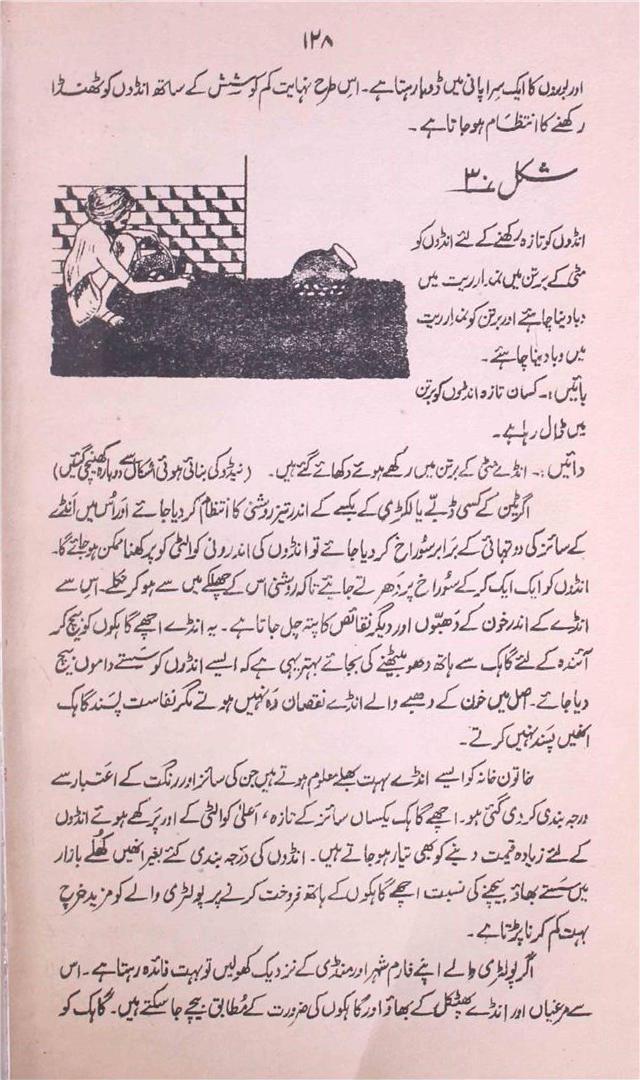 ۱۲۸
اور بوروں کا ایک سِرا پانی میں ڈوبا رہتا ہے۔ اس طرح نہایت کم کوشش کے ساتھ انڈوں کو ٹھنڈا
رکھنے کا انتظام ہو جاتا ہے۔
شکل ۳۰
انڈوں کو تازہ رکھنے کے لئے انڈوں کو
مٹی کے برتن میں نمدار ریت میں
دبا دینا چاہئے اور برتن کو نمدار ریت
میں دبا دینا چاہئے۔
بائیں:۔ کسان تازہ انڈوں کو برتن
میں ڈال رہا ہے۔
دائیں:۔ انڈے مٹی کے برتن میں رکھے ہوئے دکھائے گئے ہیں۔ (نیڈو کی بنائی ہوئی اشکال سے دوبارہ کھینچی گئیں)
اگر ٹین کے کسی ڈبے یا لکڑی کے بکسے کے اندر تیز روشنی کا انتظام کر دیا جائے اور اُس میں انڈے
کے سائز کی دو تہائی کے برابر سوراخ کر دیا جائے تو انڈوں کی اندرونی کوالٹی کو پرکھنا ممکن ہو جائے گا۔
انڈوں کو ایک ایک کر کے سُوراخ پر دھرتے جائیے تاکہ روشنی اس کے چھلکے میں سے ہو کر نکلے۔ اس سے
انڈے کے اندر خون کے دھبّوں اور دیگر نقائص کا پتہ چل جاتا ہے۔ یہ انڈے اچھے گاہکوں کو بیچ کر
آئندہ کے لئے گاہک سے ہاتھ دھو بیٹھنے کی بجائے بہتر یہی ہے کہ ایسے انڈوں کو سستے داموں بیچ
دیا جائے۔ اصل میں خون کے دھبے والے انڈے نقصان دہ نہیں ہوتے مگر نفاست پسند گاہک
انھیں پسند نہیں کرتے۔
خاتون خانہ کو ایسے انڈے بہت بھلے معلوم ہوتے ہیں جن کی سائز اور رنگت کے اعتبار سے
درجہ بندی کر دی گئی ہو۔ اچھے گاہک یکساں سائز کے تازہ، اعلیٰ کوالٹی کے اور پرکھے ہوئے انڈوں
کے لئے زیادہ قیمت دینے کو بھی تیار ہو جاتے ہیں۔ انڈوں کی درجہ بندی کئے بغیر انھیں کھُلے بازار
میں سستے بھاؤ بیچنے کی نسبت اچھے گاہکوں کے ہاتھ فروخت کرنے پر پولٹری والے کو مزید خرچ
بہت کم کرنا پڑتا ہے۔
اگر پولٹری والے اپنے فارم شہر اور منڈی کے نزدیک کھولیں تو بہت فائدہ رہتا ہے۔ اس
سے مرغیاں اور انڈے پھٹکل کے بھاؤ اور گاہکوں کی ضرورت کے مُطابق بیچے جا سکتے ہیں۔ گاہک کو